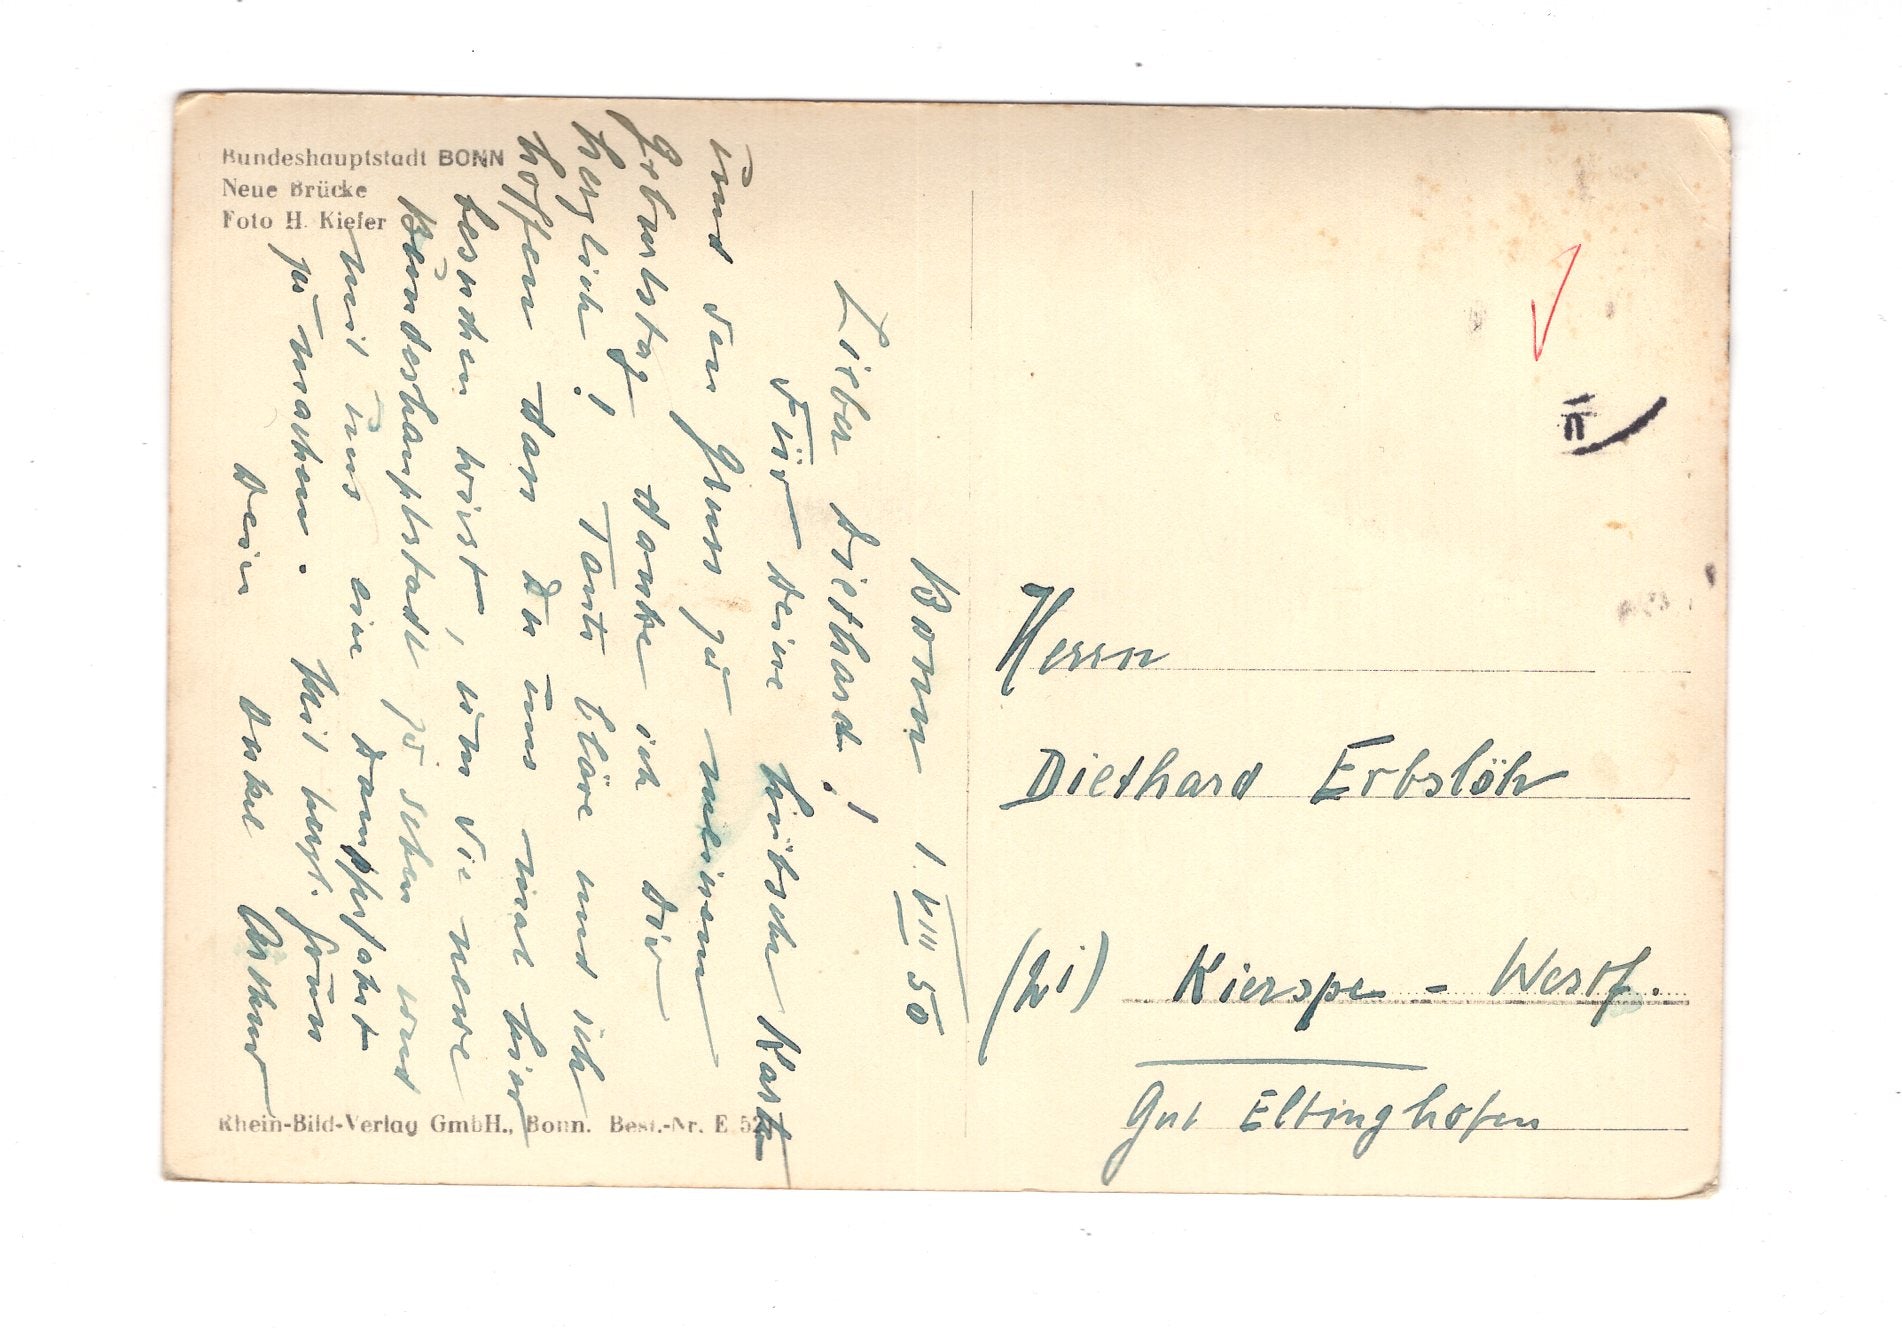 Bundeshauptstadt BONN
Neue Brücke
Foto H. Kiefer
Bonn 1. VIII 50
Lieber Diethard!
Für deine hübsche Karte
und den Gruss zu meinem
Geburtstag danke ich Dir
herzlich! Tante Cläre und ich
hoffen dass Du uns mal hier
besuchen wirst, um die neue
Bundeshauptstadt zu sehen und
mit uns eine Dampferfahrt
zu machen. Mit herzl.
Dein Onkel Arthur
Rhein-Bild-Verlag GmbH., Bonn. Best.-Nr. E 52
Herrn
Diethard Erbslöh
Kierspe - Westf.
Gut Eltinghofen